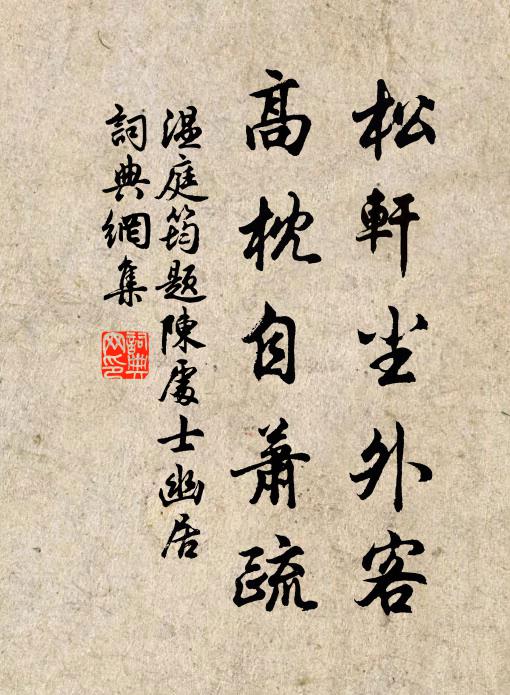 松軒尘外客
高枕自蕭疏
温庭筠題陳處士幽居
詞典網集
詞典
网印